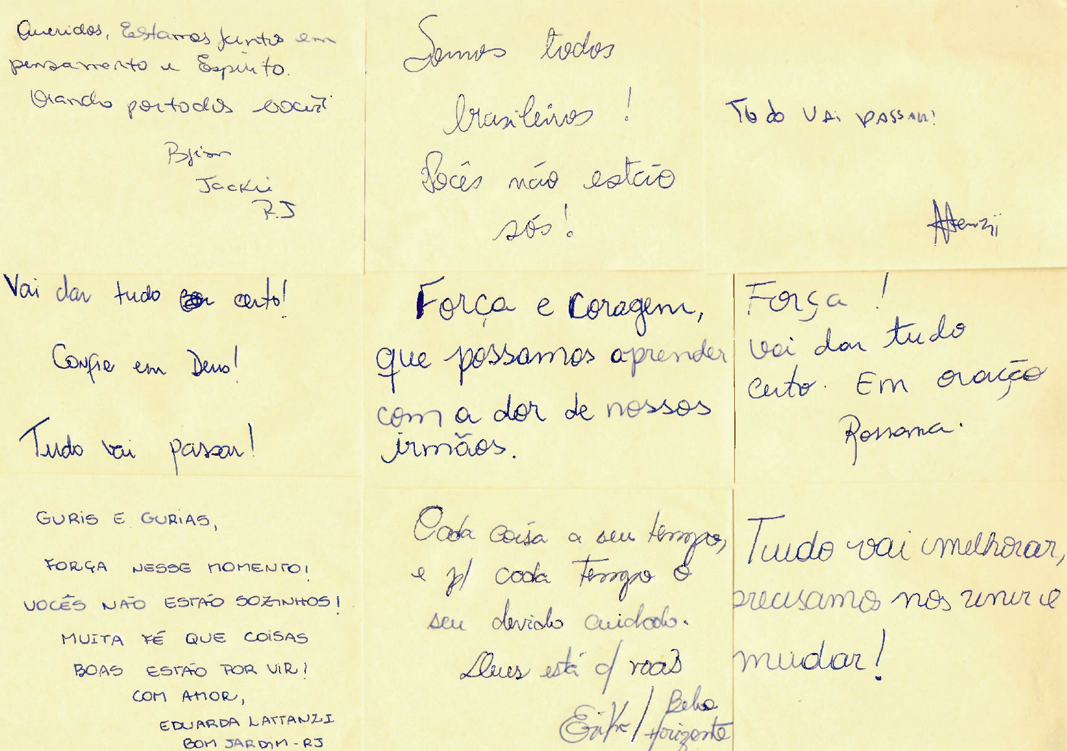 Queridos, Estamos juntos em
pensamento e Espírito.
Orando por todos vocês!
Bjins
Jackie
RJ
Somos todos
brasileiros !
Vocês não estão
sós!
Tudo vai passar!
Vai dar tudo certo!
Confie em Deus!
Tudo vai passar!
Força e Coragem,
que possamos aprender
com a dor de nossos
irmãos.
Força !
vai dar tudo
certo. Em oração
Rossana.
GURIS E GURIAS,
FORÇA NESSE MOMENTO!
VOCÊS NÃO ESTÃO SOZINHOS!
MUITA FÉ QUE COISAS
BOAS ESTÃO POR VIR!
COM AMOR,
EDUARDA LATTANZI
BOM JARDIM - RJ
Cada coisa a seu tempo,
e p/ cada tempo o
seu devido cuidado.
Deus está c/ vocês
Erika / Belo
Horizonte
Tudo vai melhorar,
precisamo nos unir e
mudar!